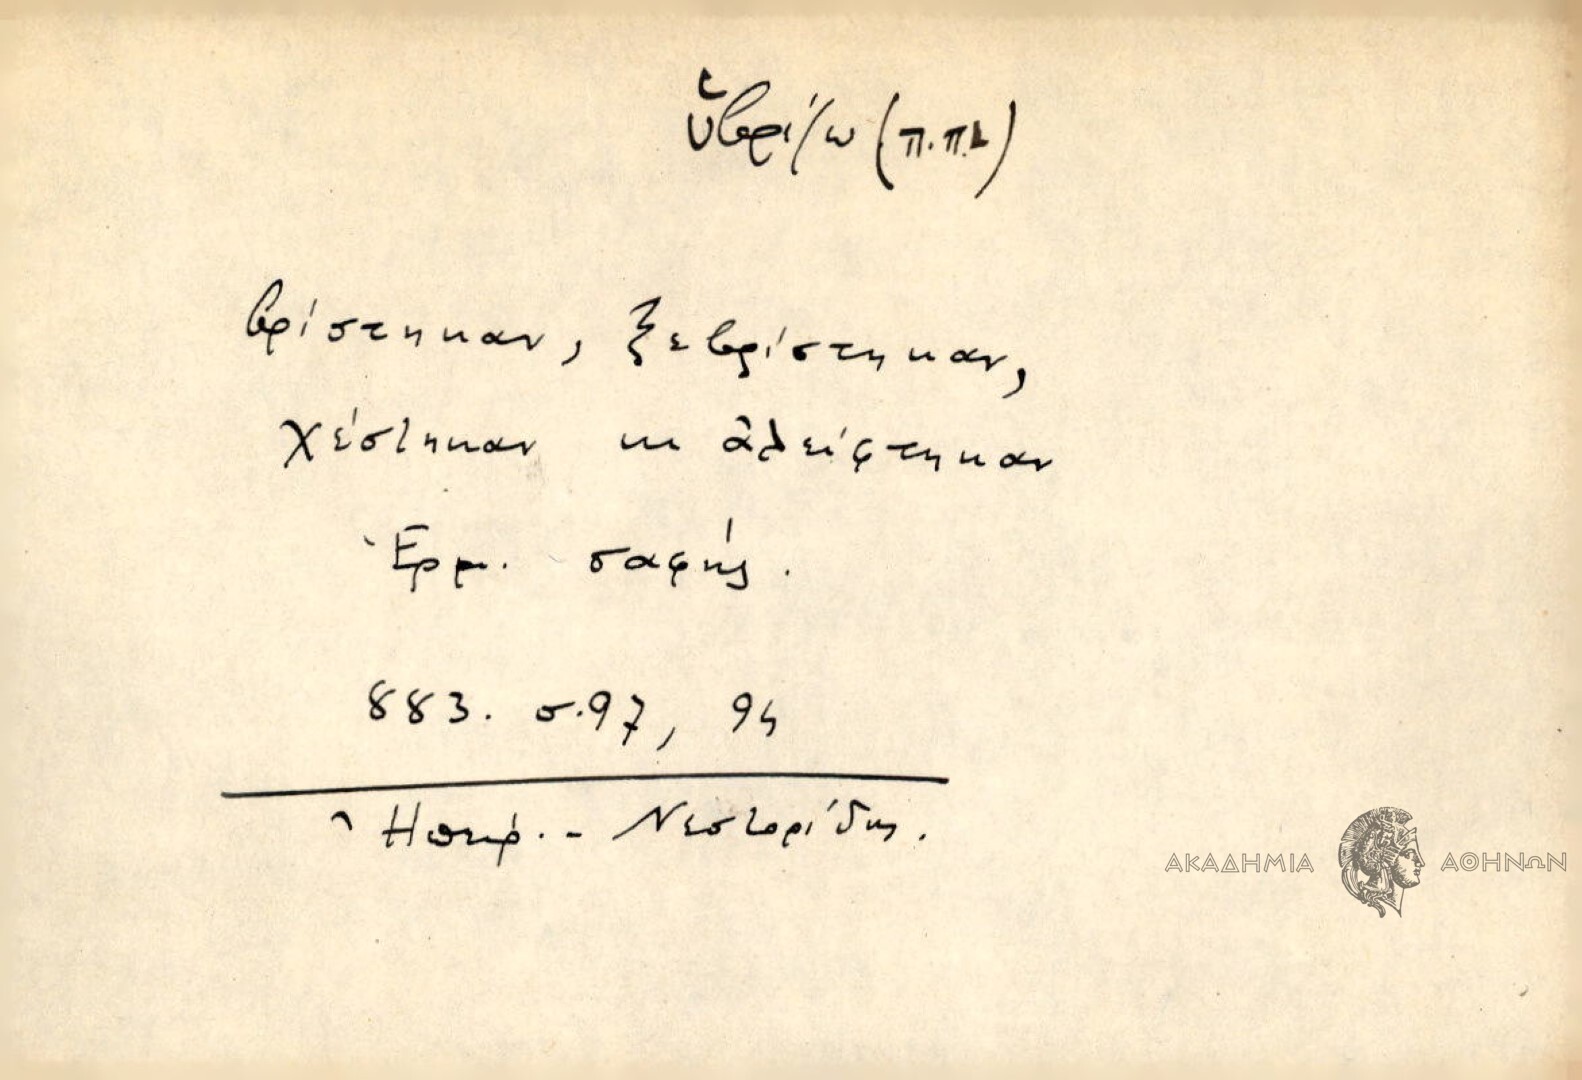 ὑβρίζω (π.π.)
βρίστηκαν, ξεβρίστηκαν,
χέστηκαν κι ἀλείφτηκαν
Ἑρμ. σαφής.
883. σ.97, 94
Ἤπειρ. - Νεστορίδης.
ΑΚΑΔΗΜΙΑ ΑΘΗΝΩΝ